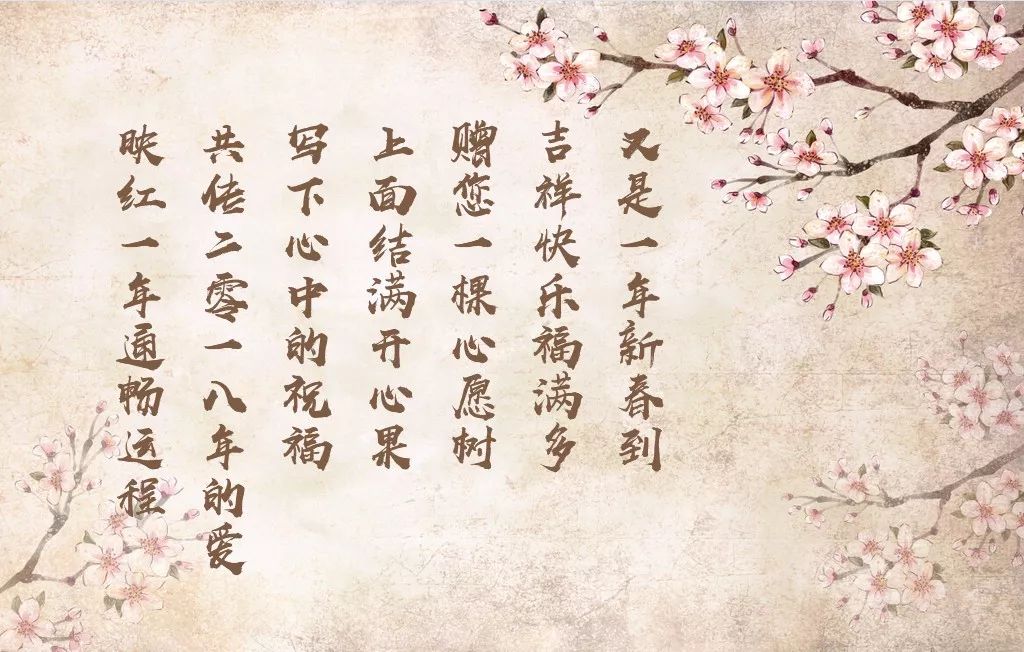 又是一年新春到
吉祥快乐福满多
赠您一棵心愿树
上面结满开心果
写下心中的祝福
共传二零一八年的爱
映红一年通畅运程